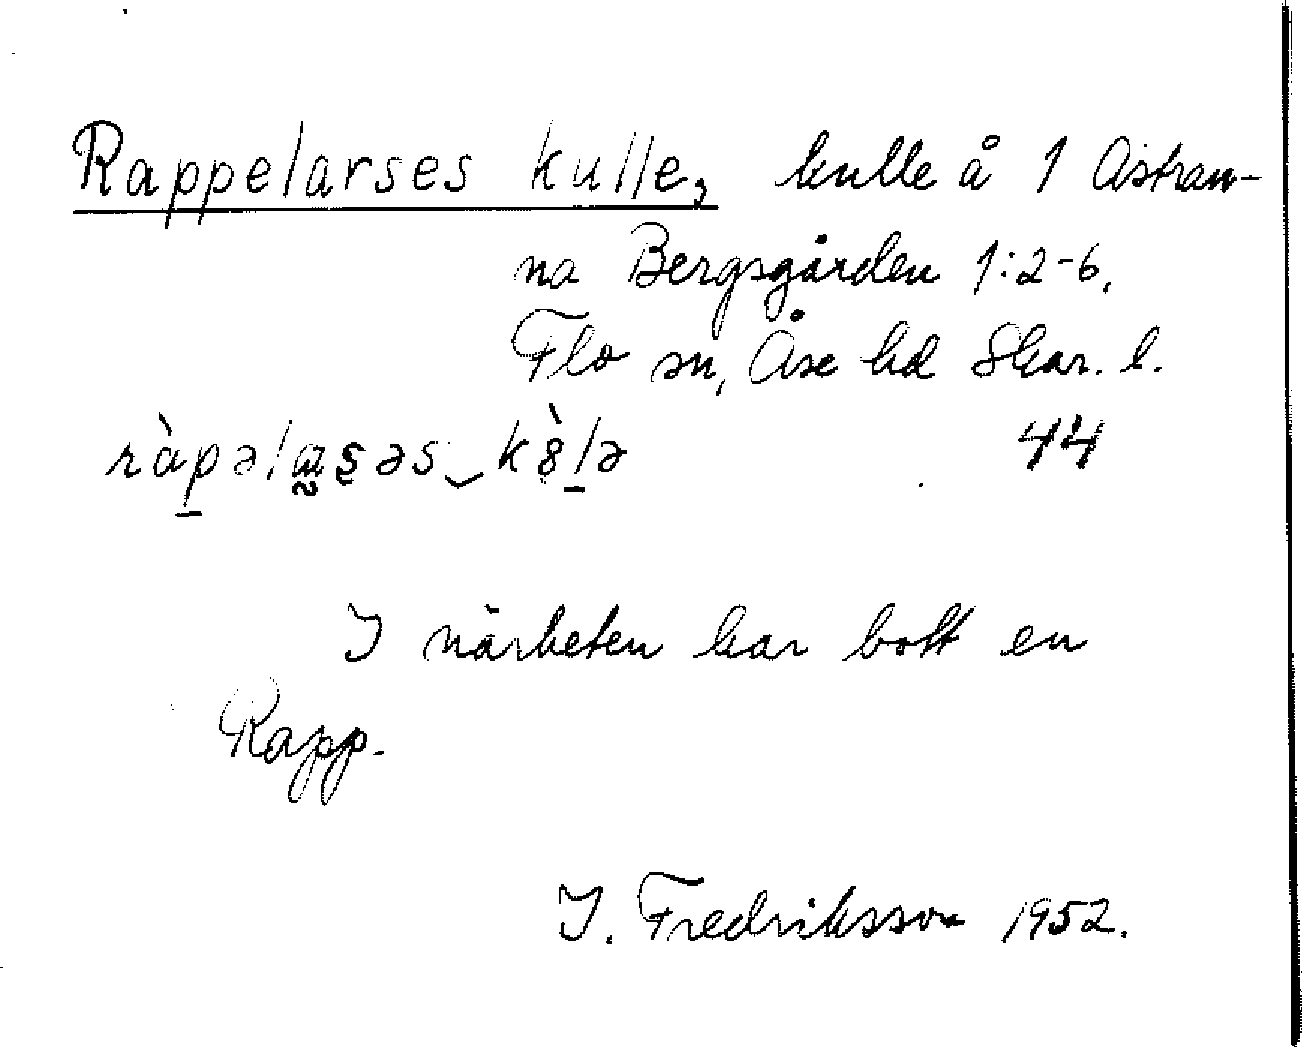 Rappelarses kulle, kulle å 1 Åstran-
na Bergsgården 1:2-6,
Flo sn, Åse hd Skar. l.
ràpəlaʂəs‿kòlə 44
I närheten har bott en
Rapp.
I. Fredriksson 1952.